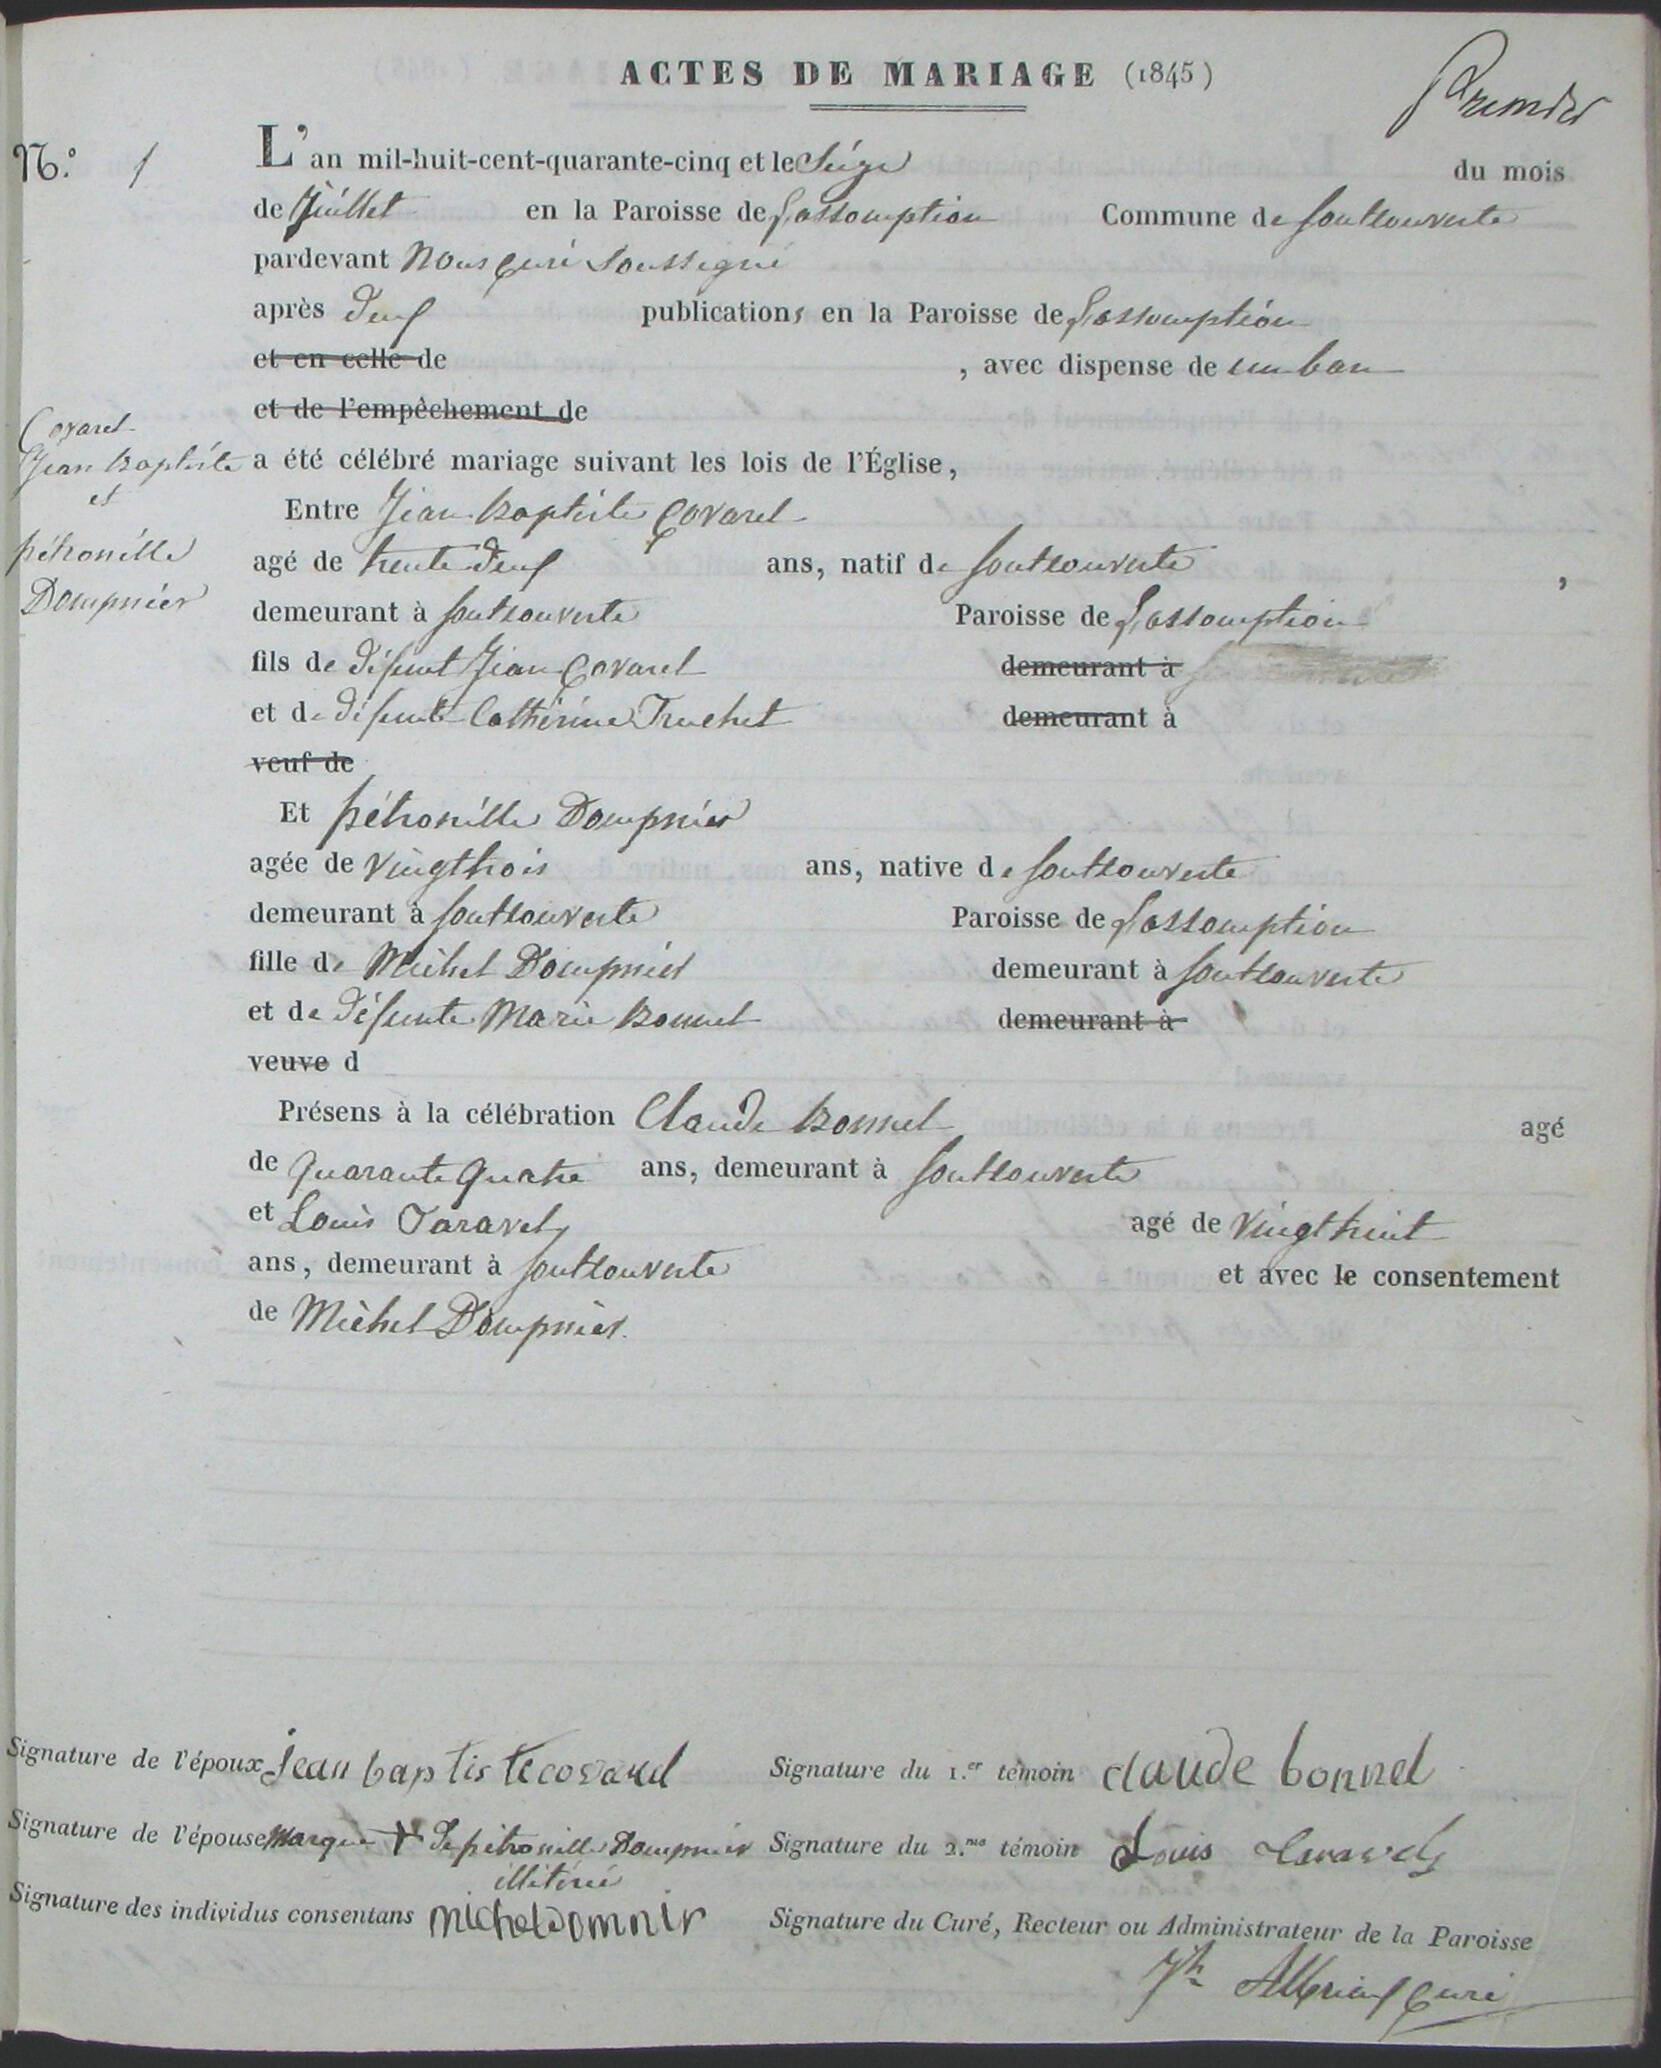 ACTES DE MARIAGE (1845)
Premier
N.° 1
L'an mil-huit-cent-quarante-cinq et le Séize du mois
de Juillet en la Paroisse de L'assomption Commune de fontcouverte
pardevant Nous Curé Soussigné
après deux publications en la Paroisse de L'assomption
et en celle de , avec dispense de un ban
et de l'empêchement de
Covarel
Jean Baptiste
et
pétronille
Dompnier
a été célébré mariage suivant les lois de l'Église,
Entre Jean Baptiste Covarel
agé de trente deux ans, natif de fontcouverte ,
demeurant à fontcouverte Paroisse de L'assomption
fils de défunt Jean Covarel demeurant à
et de défunte Cathérine Truchet demeurant à
veuf de
Et pétronille Dompnier
agée de vingt trois ans, native de fontcouverte
demeurant à fontcouverte Paroisse de L'assomption
fille de Michel Dompnier demeurant à fontcouverte
et de défunte Marie Bonnel demeurant à
veuve d
Présens à la célébration Claude Bonnel agé
de quarante quatre ans, demeurant à fontcouverte
et Louis Taravel agé de vingt huit
ans, demeurant à fontcouverte et avec le consentement
de Michel Dompnier.
Signature de l'époux Jean baptiste covarel
Signature du 1.er témoin claude bonnel
Signature de l'épouse Marque + de pétronille Dompnier
illitérée
Signature du 2.me témoin Louis Taravel
Signature des individus consentans michel domnir
Signature du Curé, Recteur ou Administrateur de la Paroisse
Jh Curé